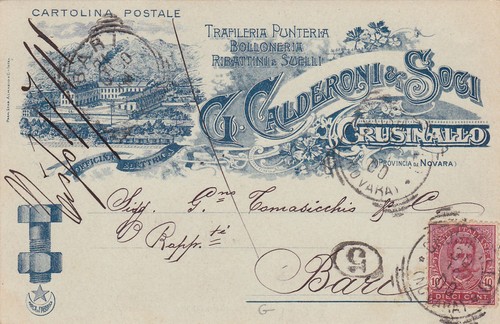 CARTOLINA POSTALE
TRAFILERIA PUNTERIA
BOLLONERIA
RIBATTINI & SUELLI
G. CALDERONI & SOCI
CRUSINALLO
(PROVINCIA DI NOVARA)
OFFICINA ELETTRICA
BARI
(NOVARA)
Sigg. G.ni Tomasicchio f. C.
Rapp.te
Bari
5
10
10
DIECI CENT.
(NOVARA)
G